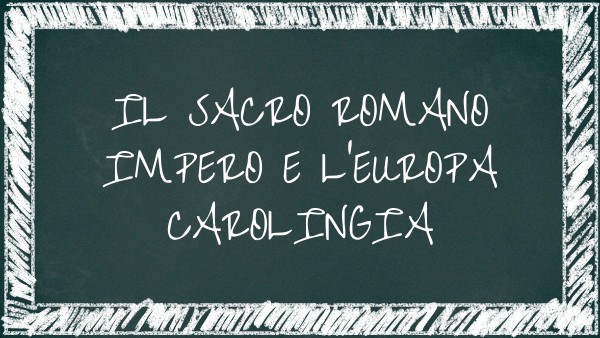 IL SACRO ROMANO
IMPERO E L'EUROPA
CAROLINGIA